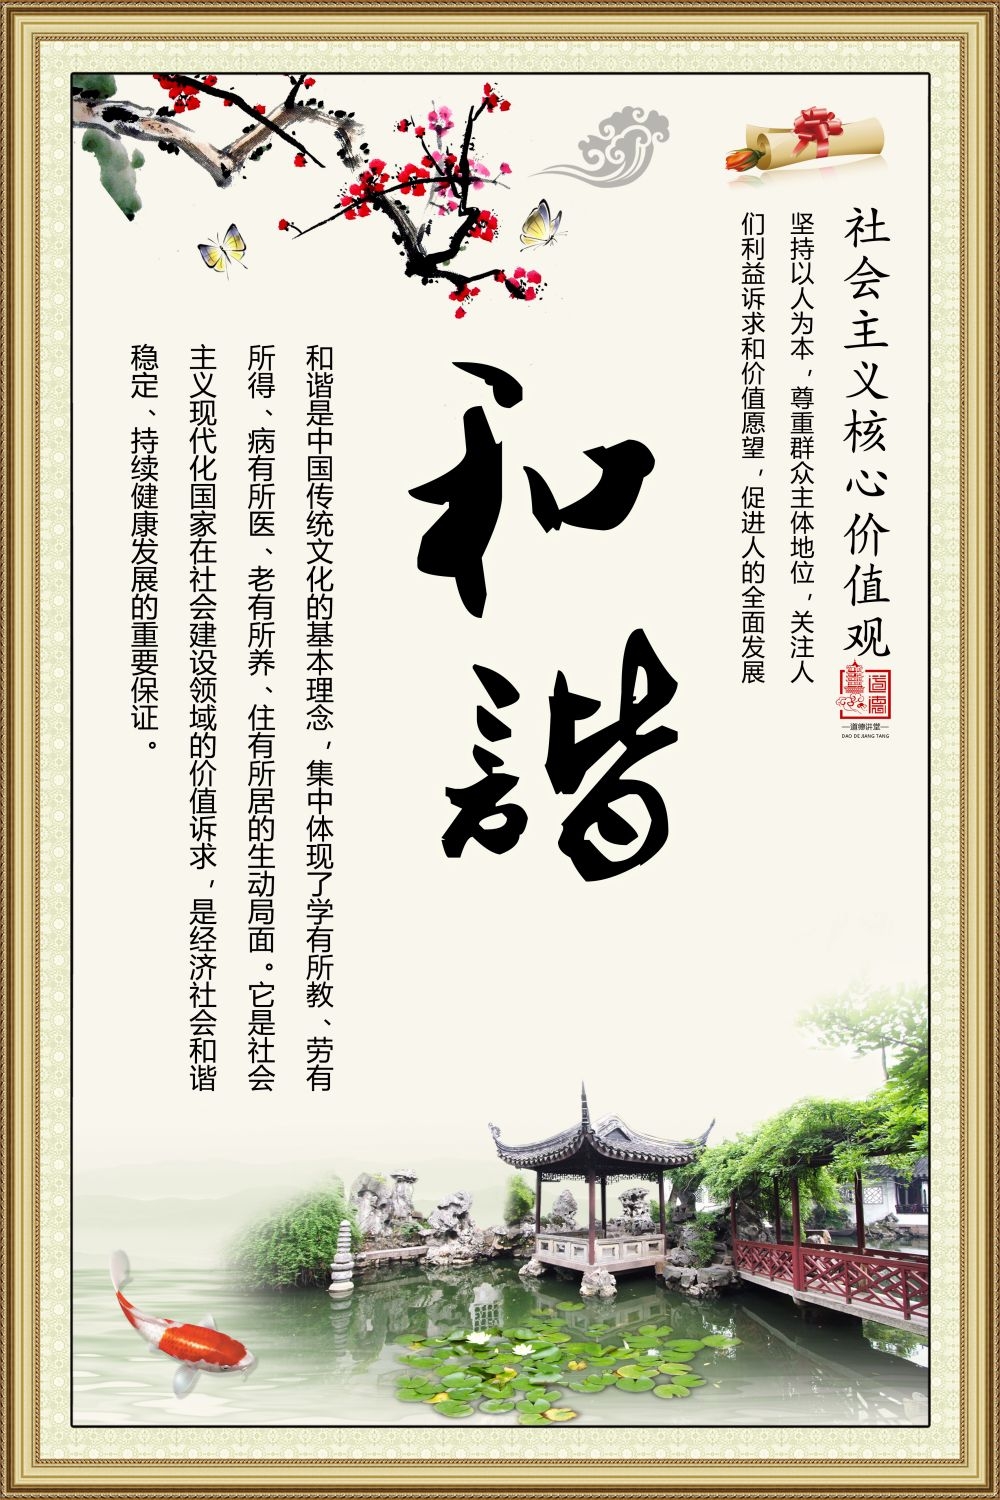 社会主义核心价值观
道德
—道德讲堂—
DAO DE JIANG TANG
坚持以人为本，尊重群众主体地位，关注人
们利益诉求和价值愿望，促进人的全面发展
和諧
和谐是中国传统文化的基本理念，集中体现了学有所教、劳有
所得、病有所医、老有所养、住有所居的生动局面。它是社会
主义现代化国家在社会建设领域的价值诉求，是经济社会和谐
稳定、持续健康发展的重要保证。